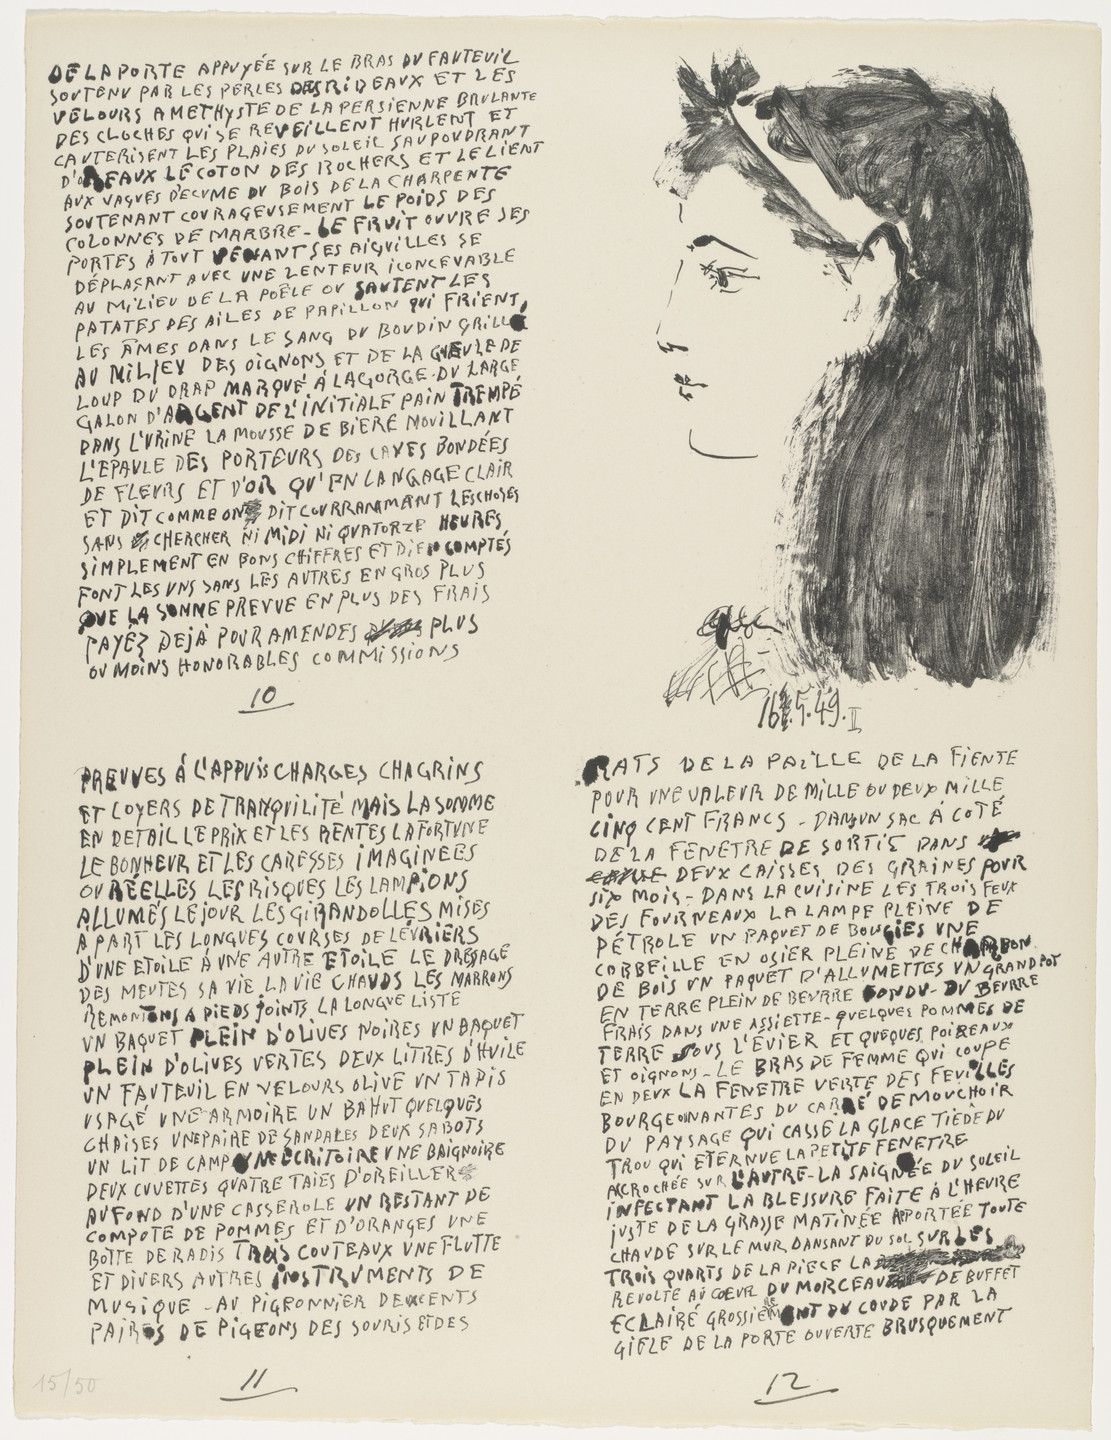 DE LA PORTE APPUYÉE SUR LE BRAS DU FAUTEUIL
SOUTENU PAR LES PERLES DES RIDEAUX ET LES
VELOURS AMETHYSTE DE LA PERSIENNE BRULANTE
DES CLOCHES QUI SE REVEILLENT HURLENT ET
CAUTERISENT LES PLAIES DU SOLEIL SAUPOUDRANT
LE COTON DES ROCHERS ET LE LIENT
AUX VAGUES D'ECUME DU BOIS DE LA CHARPENTE
SOUTENANT COURAGEUSEMENT LE POIDS DES
COLONNES DE MARBRE - LE FRUIT OUVRE SES
PORTES À TOUT VENANT SES AIGUILLES SE
DÉPLAÇANT AVEC UNE LENTEUR ICONCEVABLE
AU MILIEU DE LA POÊLE OU SAUTENT LES
PATATES DES AILES DE PAPILLON QUI FRIENT,
LES ÂMES DANS LE SANG DU BOUDIN GRILLÉ
AU MILIEU DES OIGNONS ET DE LA GUEULE DE
LOUP DU DRAP MARQUÉ À LA GORGE DU LARGE
GALON D'ARGENT DE L'INITIALE PAIN TREMPÉ
DANS L'URINE LA MOUSSE DE BIERE MOUILLANT
L'EPAULE DES PORTEURS DES CAVES BONDÉES
DE FLEURS ET D'OR QU'EN LANGAGE CLAIR
ET DIT COMME ON DIT COURRANMANT LES CHOSES
SANS CHERCHER NI MIDI NI QUATORZE HEURES
SIMPLEMENT EN BONS CHIFFRES ET DIEN COMPTÉS
FONT LES UNS DANS LES AUTRES EN GROS PLUS
QUE LA SONNE PREUVE EN PLUS DES FRAIS
PAYÉZ DEJÀ POUR AMENDES PLUS
OU MOINS HONORABLES COMMISSIONS
10
16.5.49.II
PREUVES À L'APPUIS CHARGES CHAGRINS
ET LOYERS DE TRANQUILITÉ MAIS LA SOMME
EN DETAIL LE PRIX ET LES RENTES LA FORTUNE
LE BONHEUR ET LES CARESSES IMAGINEES
OU RÉELLES LES RISQUES LES LAMPIONS
ALLUMÉS LE JOUR LES GIRANDOLLES MISES
A PART LES LONGUES COURSES DE LEVRIERS
D'UNE ETOILE À UNE AUTRE ETOILE LE DRESSAGE
DES MEUTES SA VIE LA VIE CHAUDS LES MARRONS
REMONTONS A PIEDS JOINTS LA LONGUE LISTE
UN BAQUET PLEIN D'OLIVES NOIRES UN BAQUET
PLEIN D'OLIVES VERTES DEUX LITRES D'HUILE
UN FAUTEUIL EN VELOURS OLIVE UN TAPIS
USAGÉ UNE ARMOIRE UN BAHUT QUELQUES
CHAISES UNE PAIRE DE SANDALES DEUX SABOTS
UN LIT DE CAMP UNE ÉCRITOIRE UNE BAIGNOIRE
DEUX CUVETTES QUATRE TAIES D'OREILLER
AU FOND D'UNE CASSEROLE UN RESTANT DE
COMPOTE DE POMMES ET D'ORANGES UNE
BOTTE DE RADIS TROIS COUTEAUX UNE FLUTTE
ET DIVERS AUTRES INSTRUMENTS DE
MUSIQUE - AU PIGEONNIER DEUXCENTS
PAIRES DE PIGEONS DES SOURIS ET DES
11
RATS DE LA PAILLE DE LA FIENTE
POUR UNE VALEUR DE MILLE OU DEUX MILLE
CINQ CENT FRANCS - DANS UN SAC À COTÉ
DE LA FENETRE DE SORTIS DANS
DEUX CAISSES DES GRAINES POUR
SIX MOIS - DANS LA CUISINE LES TROIS FEUX
DES FOURNEAUX LA LAMPE PLEINE DE
PÉTROLE UN PAQUET DE BOUGIES UNE
CORBEILLE EN OSIER PLEINE DE CHARBON
DE BOIS UN PAQUET D'ALLUMETTES UN GRAND POT
EN TERRE PLEIN DE BEURRE FONDU - DU BEURRE
FRAIS DANS UNE ASSIETTE - QUELQUES POMMES DE
TERRE SOUS L'ÉVIER ET QUEQUES POIREAUX
ET OIGNONS - LE BRAS DE FEMME QUI COUPE
EN DEUX LA FENETRE VERTE DES FEUILLES
BOURGEONNANTES DU CARRÉ DE MOUCHOIR
DU PAYSAGE QUI CASSE LA GLACE TIÈDE DU
TROU QUI ETERNUE LA PETITE FENETRE
ACCROCHÉE SUR L'AUTRE - LA SAIGNÉE DU SOLEIL
INFECTANT LA BLESSURE FAITE À L'HEURE
JUSTE DE LA GRASSE MATINÉE APPORTÉE TOUTE
CHAUDE SUR LE MUR DANSANT DU SOL SUR LES
TROIS QUARTS DE LA PIECE LA
REVOLTE AU COEUR DU MORCEAU DE BUFFET
ECLAIRÉ GROSSIEREMENT DU COUDE PAR LA
GIFLE DE LA PORTE OUVERTE BRUSQUEMENT
12
15/50